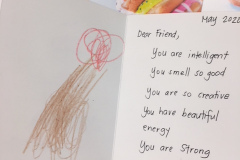 May 2020
Dear Friend,
You are intelligent
You smell so good
You are so creative
You have beautiful
energy
You are Strong